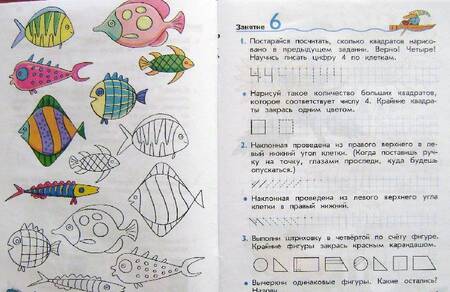 Занятие 6
1. Постарайся посчитать, сколько квадратов нарисо-
вано в предыдущем задании. Верно! Четыре!
Научись писать цифру 4 по клеткам.
44
• Нарисуй такое количество больших квадратов,
которое соответствует числу 4. Крайние квадра-
ты закрась одним цветом.
2. Наклонная проведена из правого верхнего в ле-
вый нижний угол клетки. (Когда поставишь руч-
ку на точку, глазами проследи, куда будешь
опускаться.)
• Наклонная проведена из левого верхнего угла
клетки в правый нижний.
3. Выполни штриховку в четвёртой по счёту фигуре.
Крайние фигуры закрась красным карандашом.
• Вычеркни одинаковые фигуры. Какие остались?
Назови.